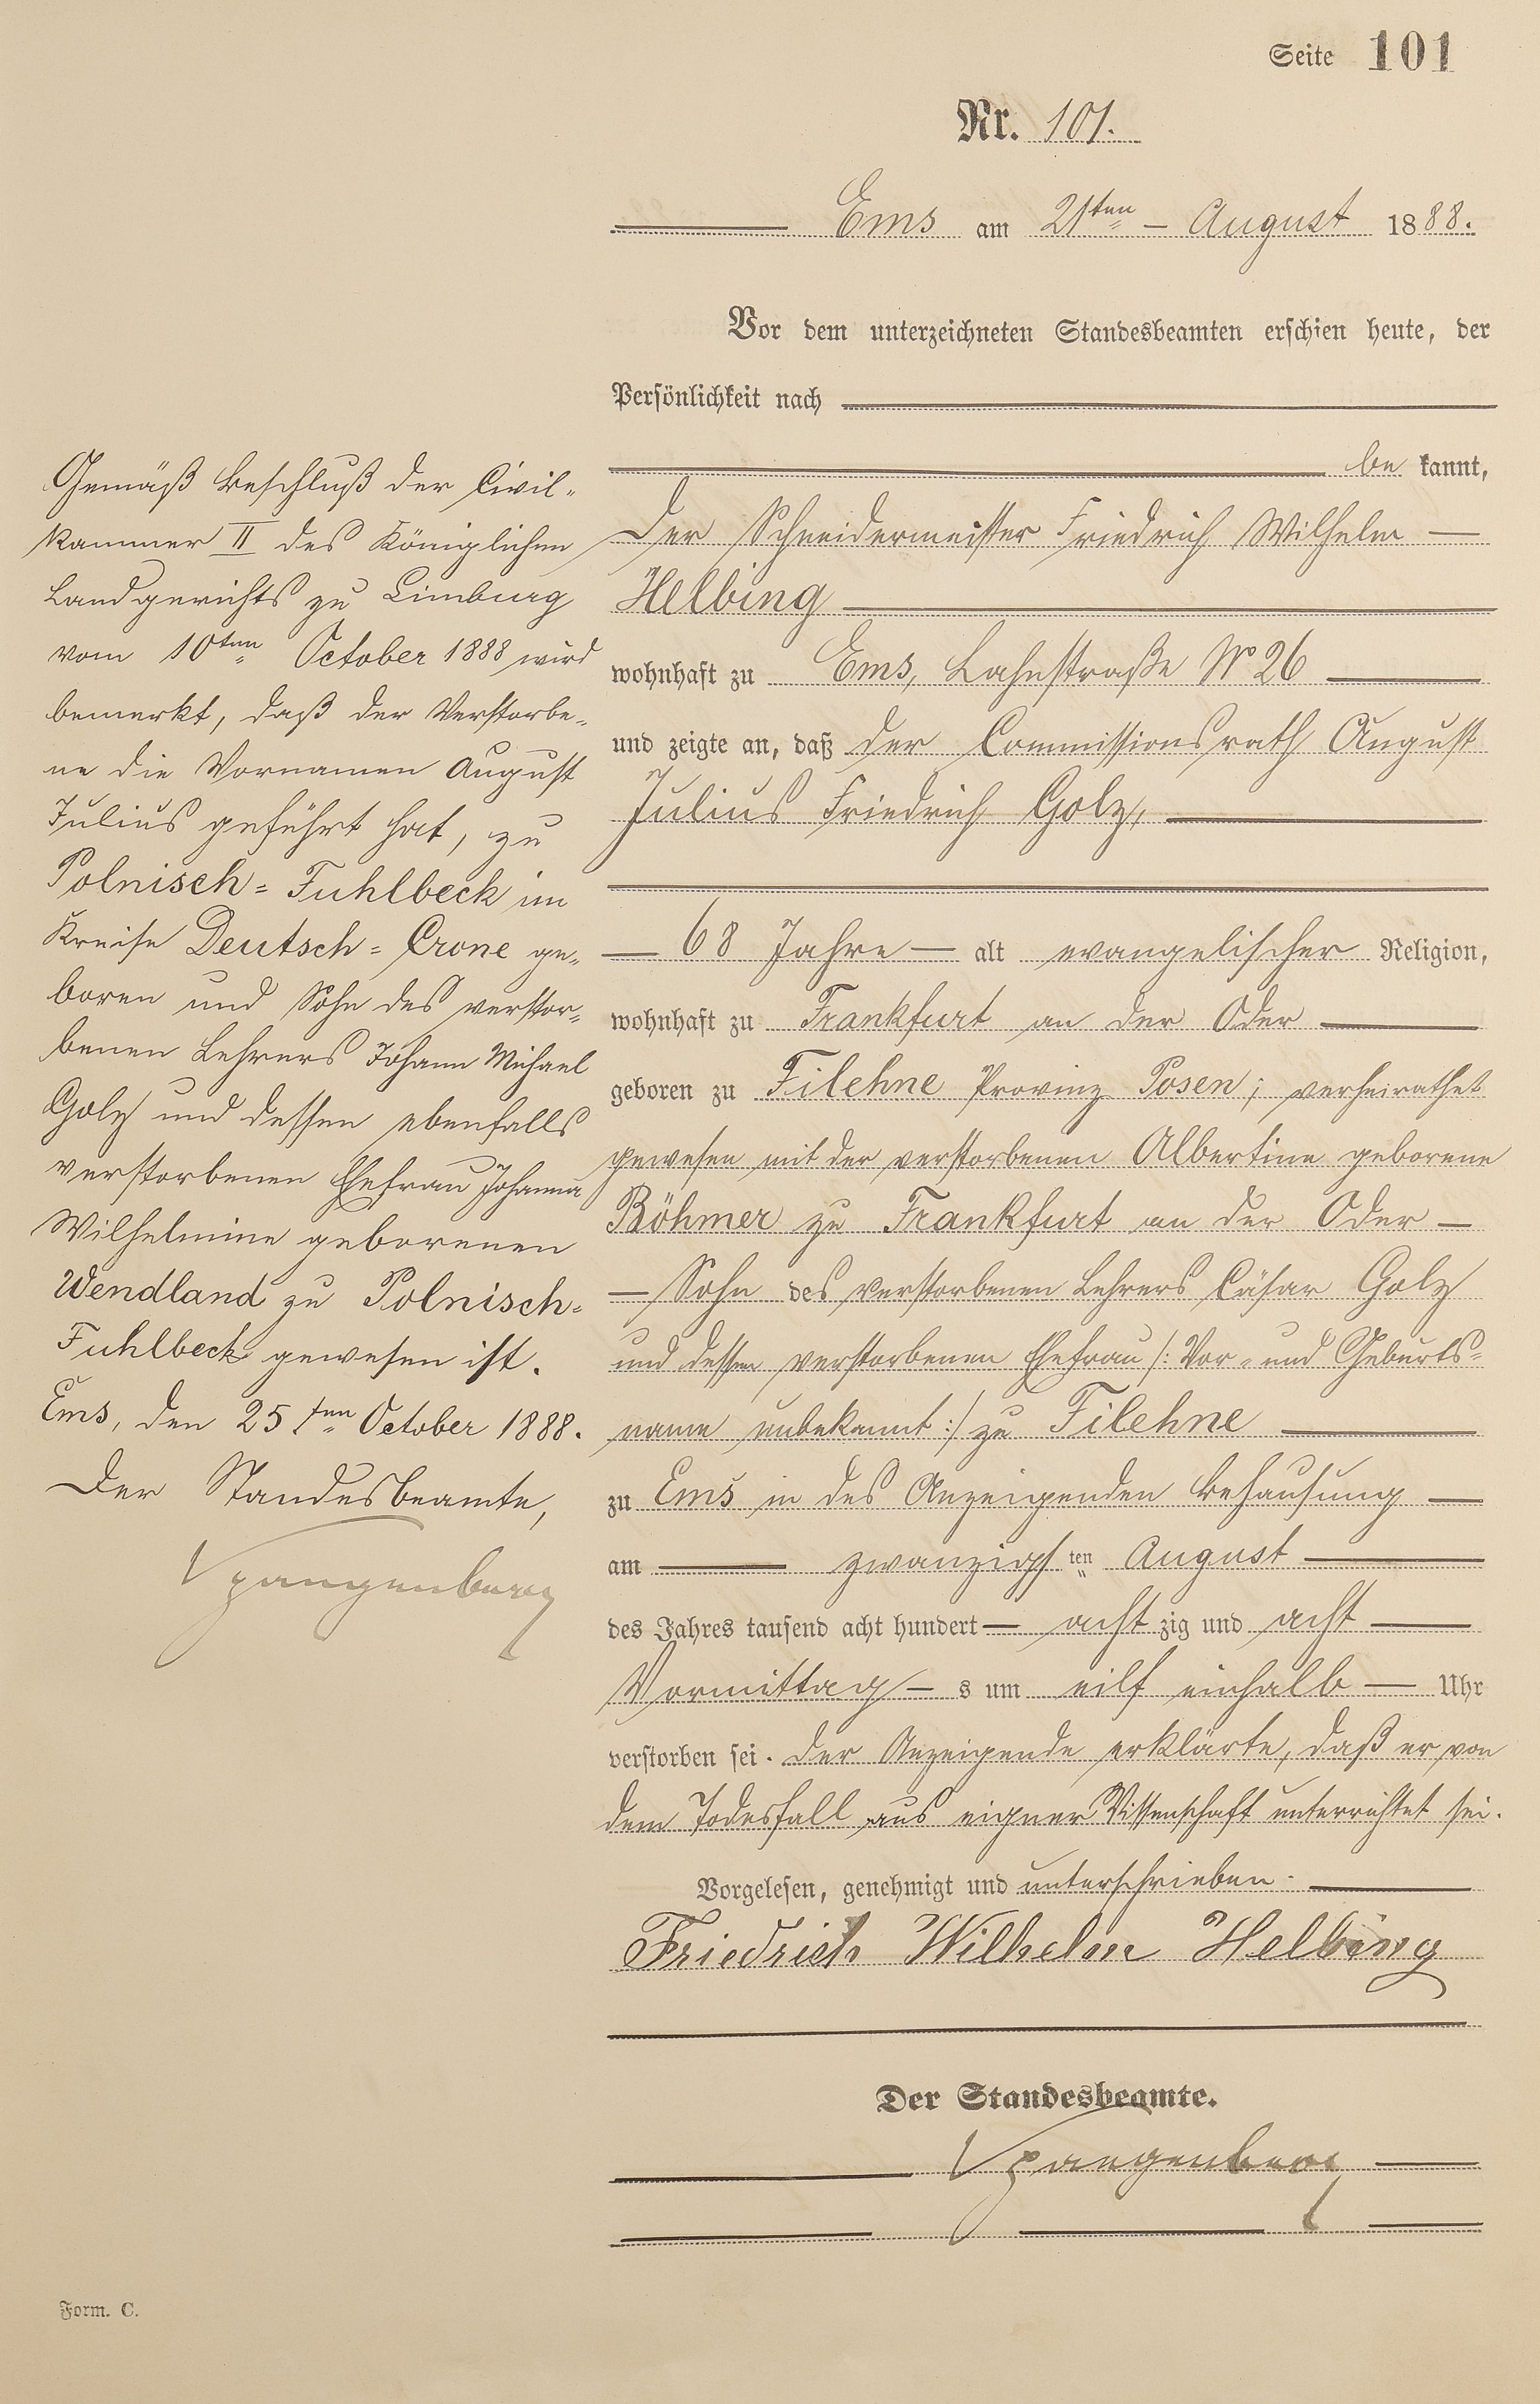 Seite 101
Nr. 101.
Ems am 21ten August 1888.
Vor dem unterzeichneten Standesbeamten erschien heute, der
Persönlichkeit nach
be kannt,
der Schneidermeister Friedrich Wilhelm
Helbing
wohnhaft zu Ems, Lahnstraße No 26
und zeigte an, daß der Commissionsrath August
Julius Friedrich Golz,
68 Jahre alt evangelischer Religion,
wohnhaft zu Frankfurt an der Oder
geboren zu Filehne Provinz Posen; verheirathet
gewesen mit der verstorbenen Albertine geborene
Böhmer zu Frankfurt an der Oder
Sohn des verstorbenen Lehrers Cäsar Golz
und dessen verstorbenen Ehefrau /: Vor- und Geburts-
name unbekannt :/ zu Filehne
zu Ems in des Anzeigenden Behausung
am zwanzigsten August
des Jahres tausend acht hundert achtzig und acht
Vormittags um eilf einhalb Uhr
verstorben sei. Der Anzeigende erklärte, daß er von
dem Todesfall aus eigner Wissenschaft unterrichtet sei.
Vorgelesen, genehmigt und unterschrieben.
Friedrich Wilhelm Helbing
Der Standesbeamte.
Spangenberg
Gemäß Beschluß der Civil-
kammer II des Königlichen
Landgerichts zu Limburg
vom 10ten October 1888 wird
bemerkt, daß der Verstorbe-
ne die Vornamen August
Julius geführt hat, zu
Polnisch-Fuhlbeck im
Kreise Deutsch-Crone ge-
boren und Sohn des verstor-
benen Lehrers Johann Michael
Golz und dessen ebenfalls
verstorbenen Ehefrau Johanna
Wilhelmine geborenen
Wendland zu Polnisch-
Fuhlbeck gewesen ist.
Ems, den 25ten October 1888.
Der Standesbeamte,
Spangenberg
Form. C.